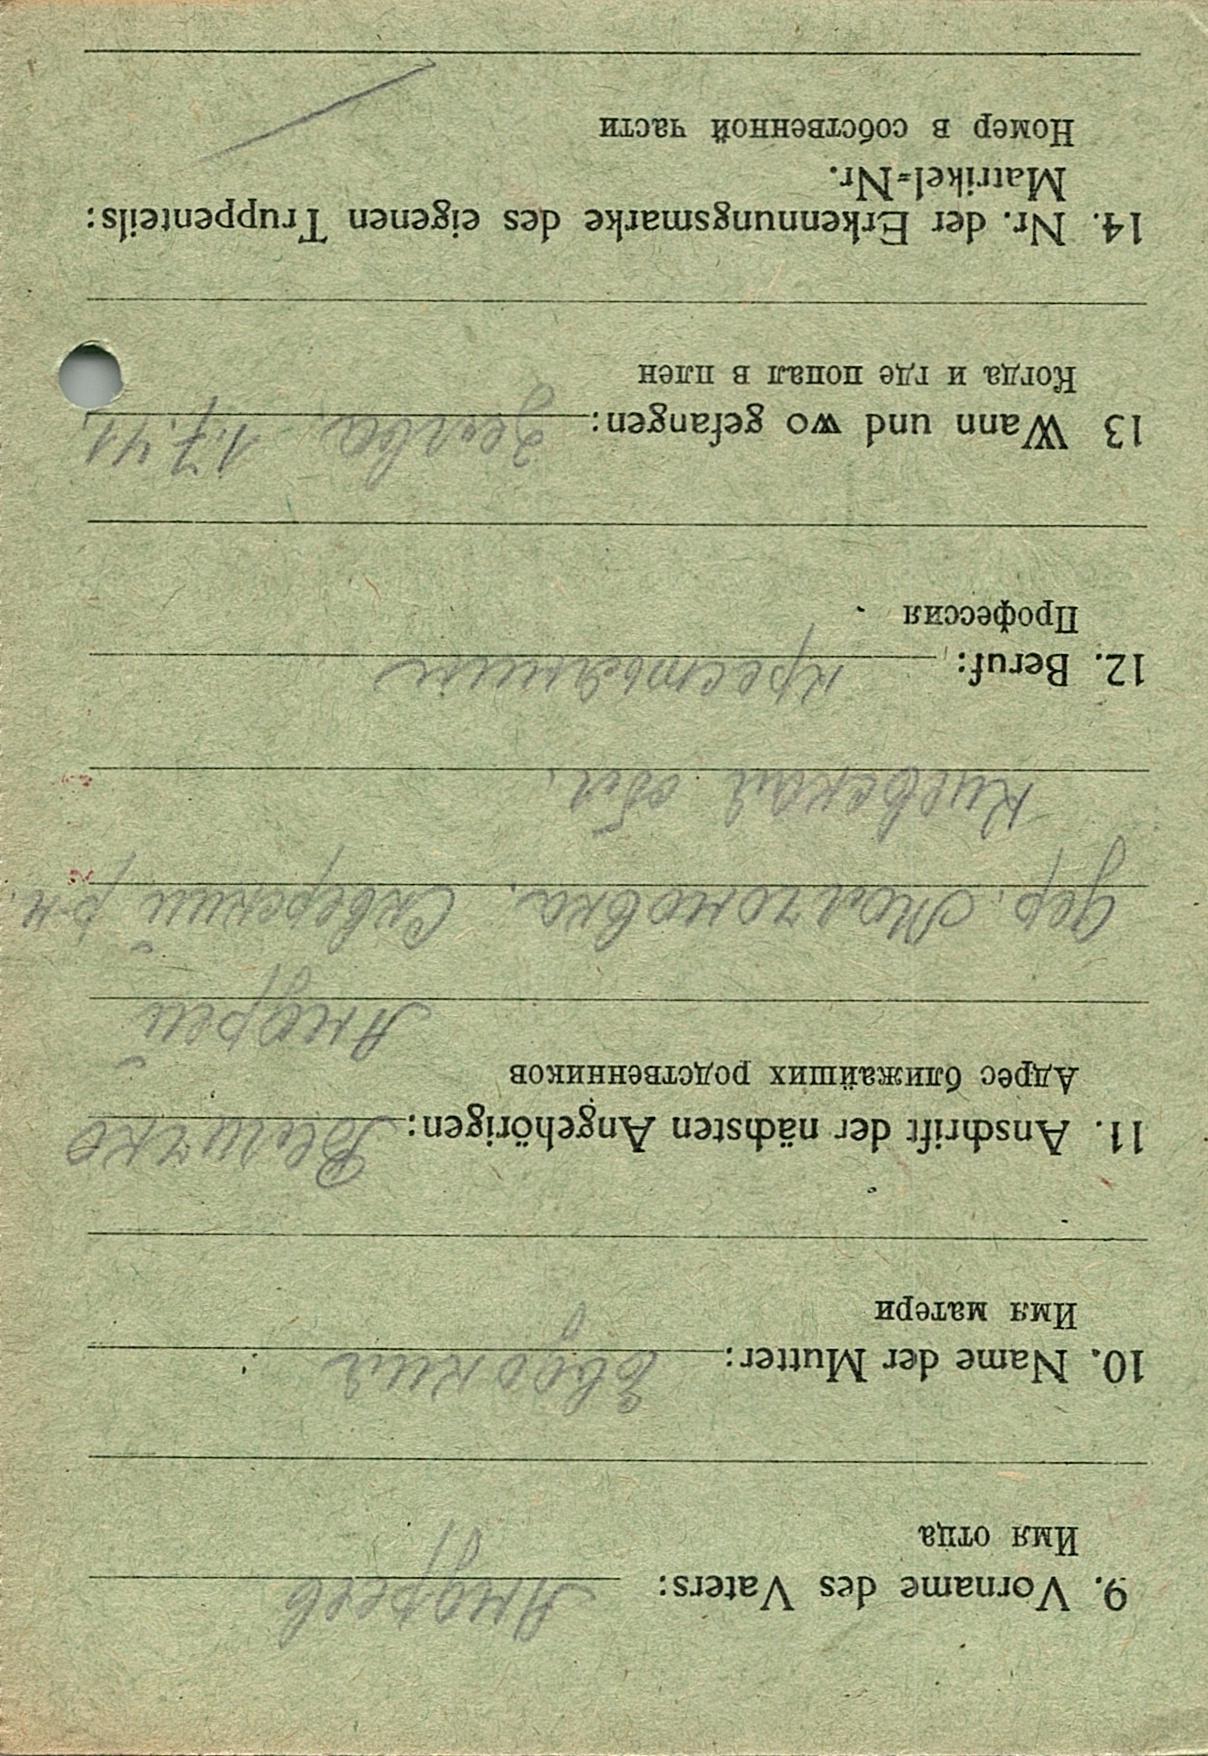 9. Vorname des Vaters: Андреев
Имя отца
10. Name der Mutter: Евдокия
Имя матери
11. Anschrift der nächsten Angehörigen: Величко
Адрес ближайших родственников
Андрей
дер. Молчоновка, Сквирский р-н.
Киевской обл.
12. Beruf: крестьянин
Профессия
13 Wann und wo gefangen: Зельва, 1.7.41
Когда и где попал в плен
14. Nr. der Erkennungsmarke des eigenen Truppenteils:
Matrikel=Nr.
Номер в собственной части